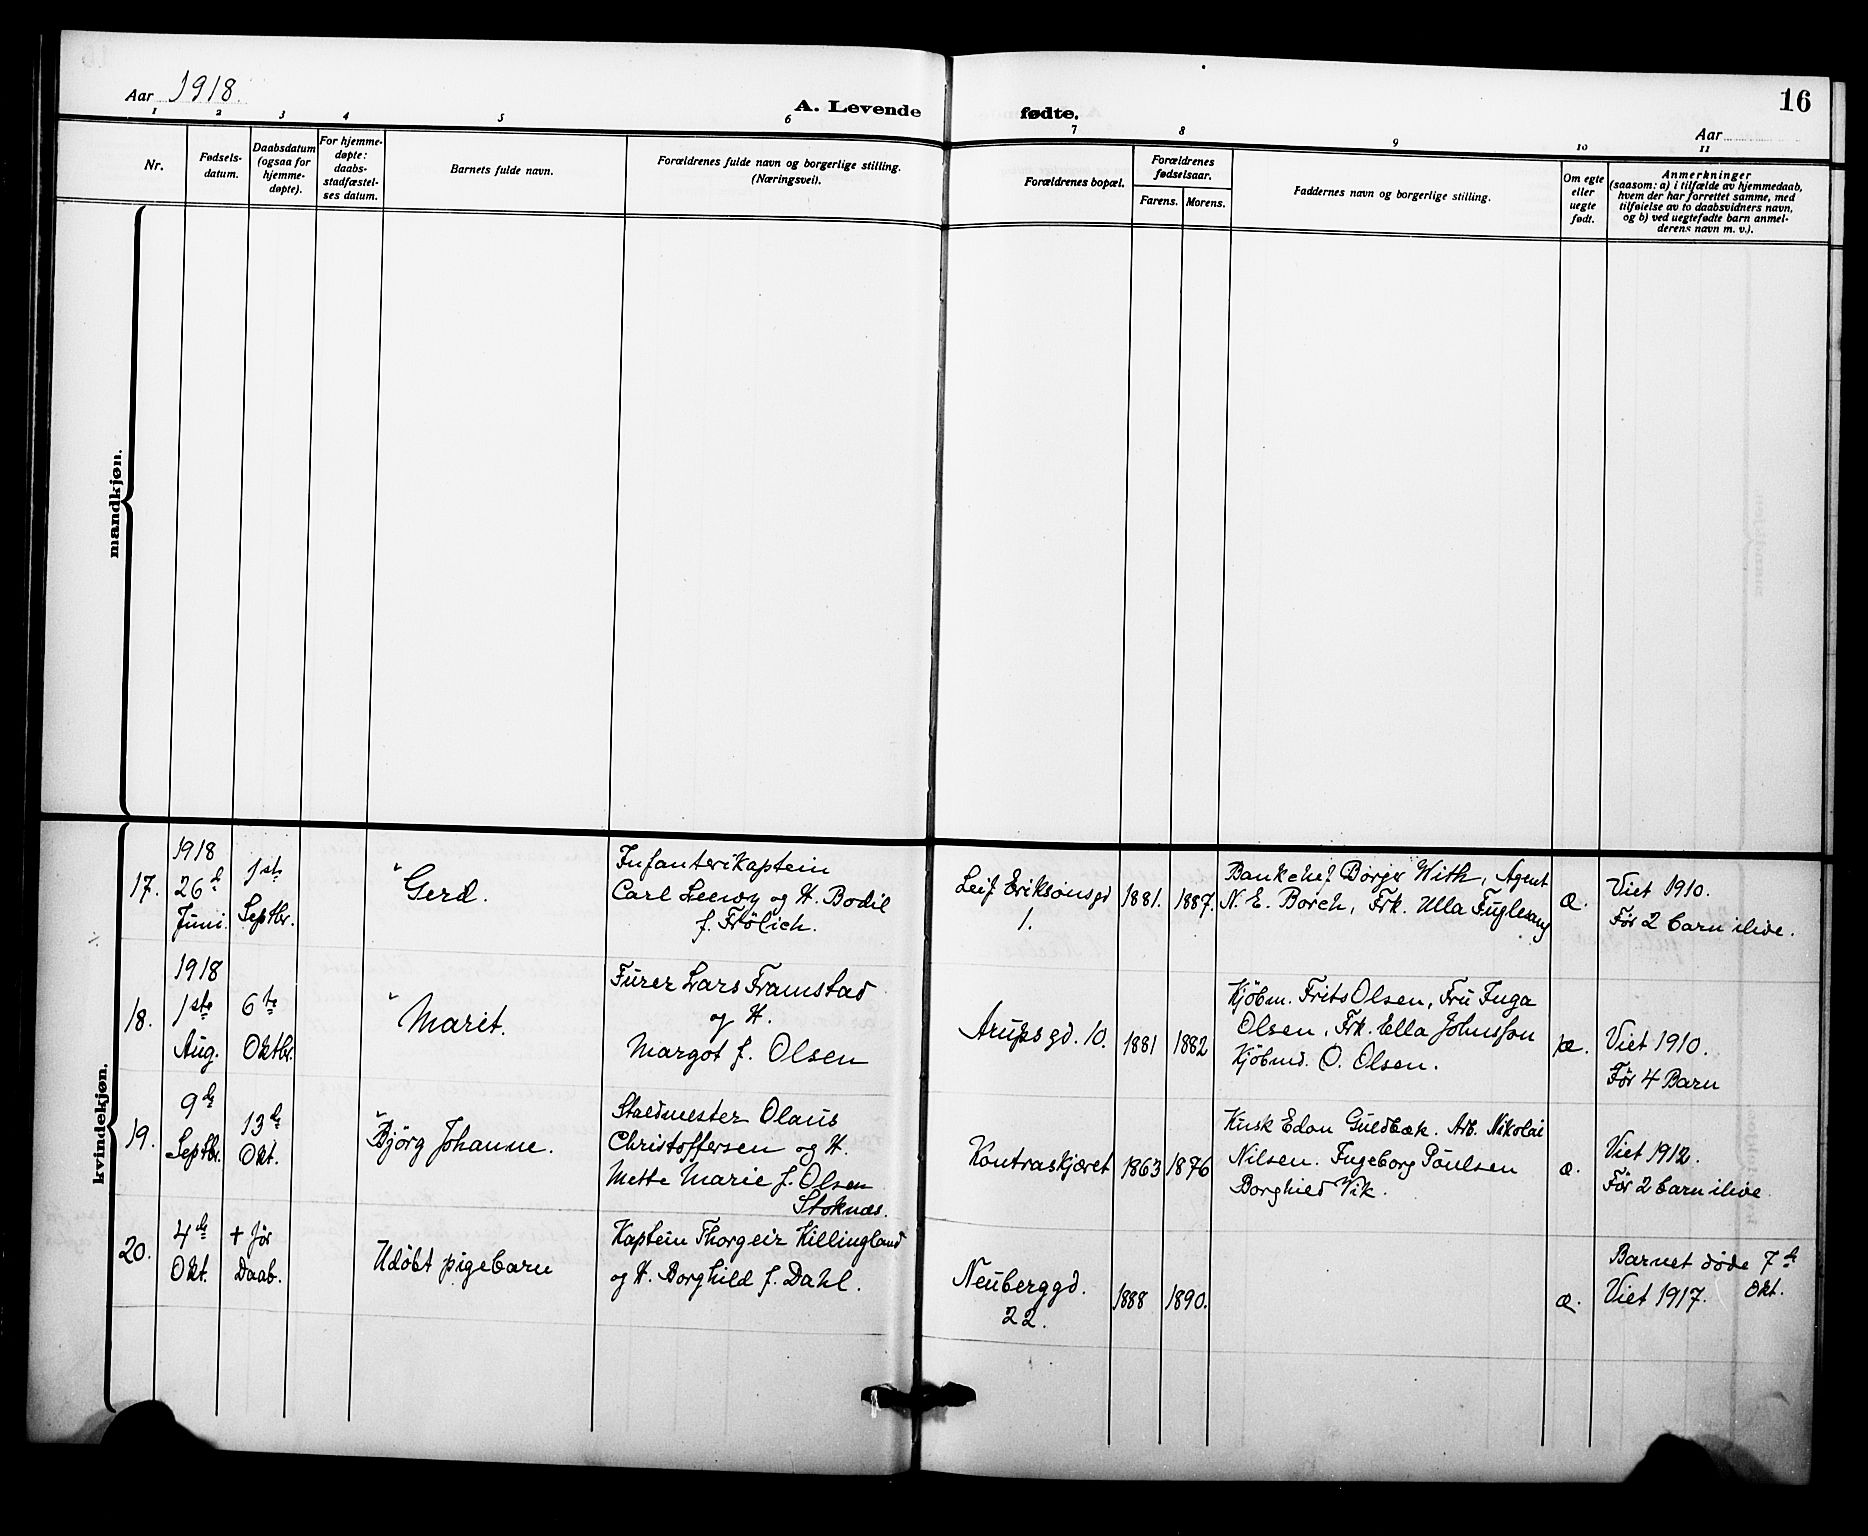 Aar 1918.
A. Levende fødte.
16
Aar
1 2 3 4 5 6 7 8 9 10 11
Nr.
Fødsels-
datum.
Daabsdatum
(ogsaa for
hjemme-
døpte).
For hjemme-
døpte:
daabs-
stadfæstel-
ses datum.
Barnets fulde navn.
Forældrenes fulde navn og borgerlige stilling.
(Næringsvei).
Forældrenes bopæl.
Forældrenes
fødselsaar.
Farens. Morens.
Faddernes navn og borgerlige stilling.
Om egte
eller
uegte
født.
Anmerkninger
(saasom: a) i tilfælde av hjemmedaab,
hvem der har forrettet samme, med
tilføielse av to daabsvidners navn,
og b) ved uegtefødte barn anmel-
derens navn m. v.).
mandkjøn.
kvindekjøn.
17.
1918
26d
Juni.
1ste
Septbr.
Gerd.
Infanterikaptein
Carl og H. Bodil
f. Frölich.
Leif Eriksönsgd
1.
1881.
1887.
Bankchef Börger With, Agent
N. E. Borch, Frk. Ulla Fuglesang
æ.
Viet 1910.
Før 2 barn ilive.
18.
1918
1ste
Aug.
6te
Oktbr.
Marit.
Furer Lars Framstad
og H.
Margot f. Olsen
Arupsgd. 10.
1881
1882
Kjöbm. Frits Olsen, Fru Inga
Olsen, Frk. Ella Johnsson
Kjöbmd. O. Olsen.
æ.
Viet 1910.
Før 4 Barn
19.
9de
Septbr.
13de
Okt.
Bjørg Johanne.
Staldmester Olaus
Christoffersen og H.
Mette Marie f. Olsen
Stoknes.
Kontraskjæret
1863
1876
Kusk Edon Guldbæk. Arb. Nikolai
Nilsen. Ingeborg Poulsen
Borghild Vik.
æ.
Viet 1912.
Før 2 barn ilive
20.
4de
Okt.
+ før
Daab.
Udöbt pigebarn
Kaptein Thorgeir Killingland
og H. Borghild f. Dahl.
Neuberggd.
22.
1888
1890.
æ.
Barnet döde 7de
Okt.
Viet 1917.